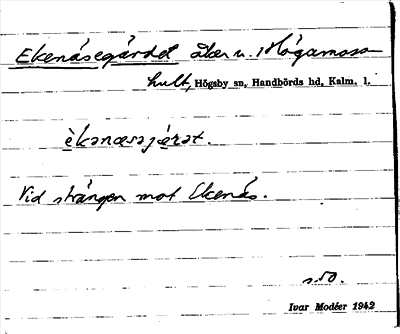 Ekenäsegärdet åker u. Högamossa
hult, Högsby sn, Handbörds hd, Kalm. l.
èkənæsəjæ̀rət.
Vid stängen mot Ekenäs.
s. 50.
Ivar Modéer 1942